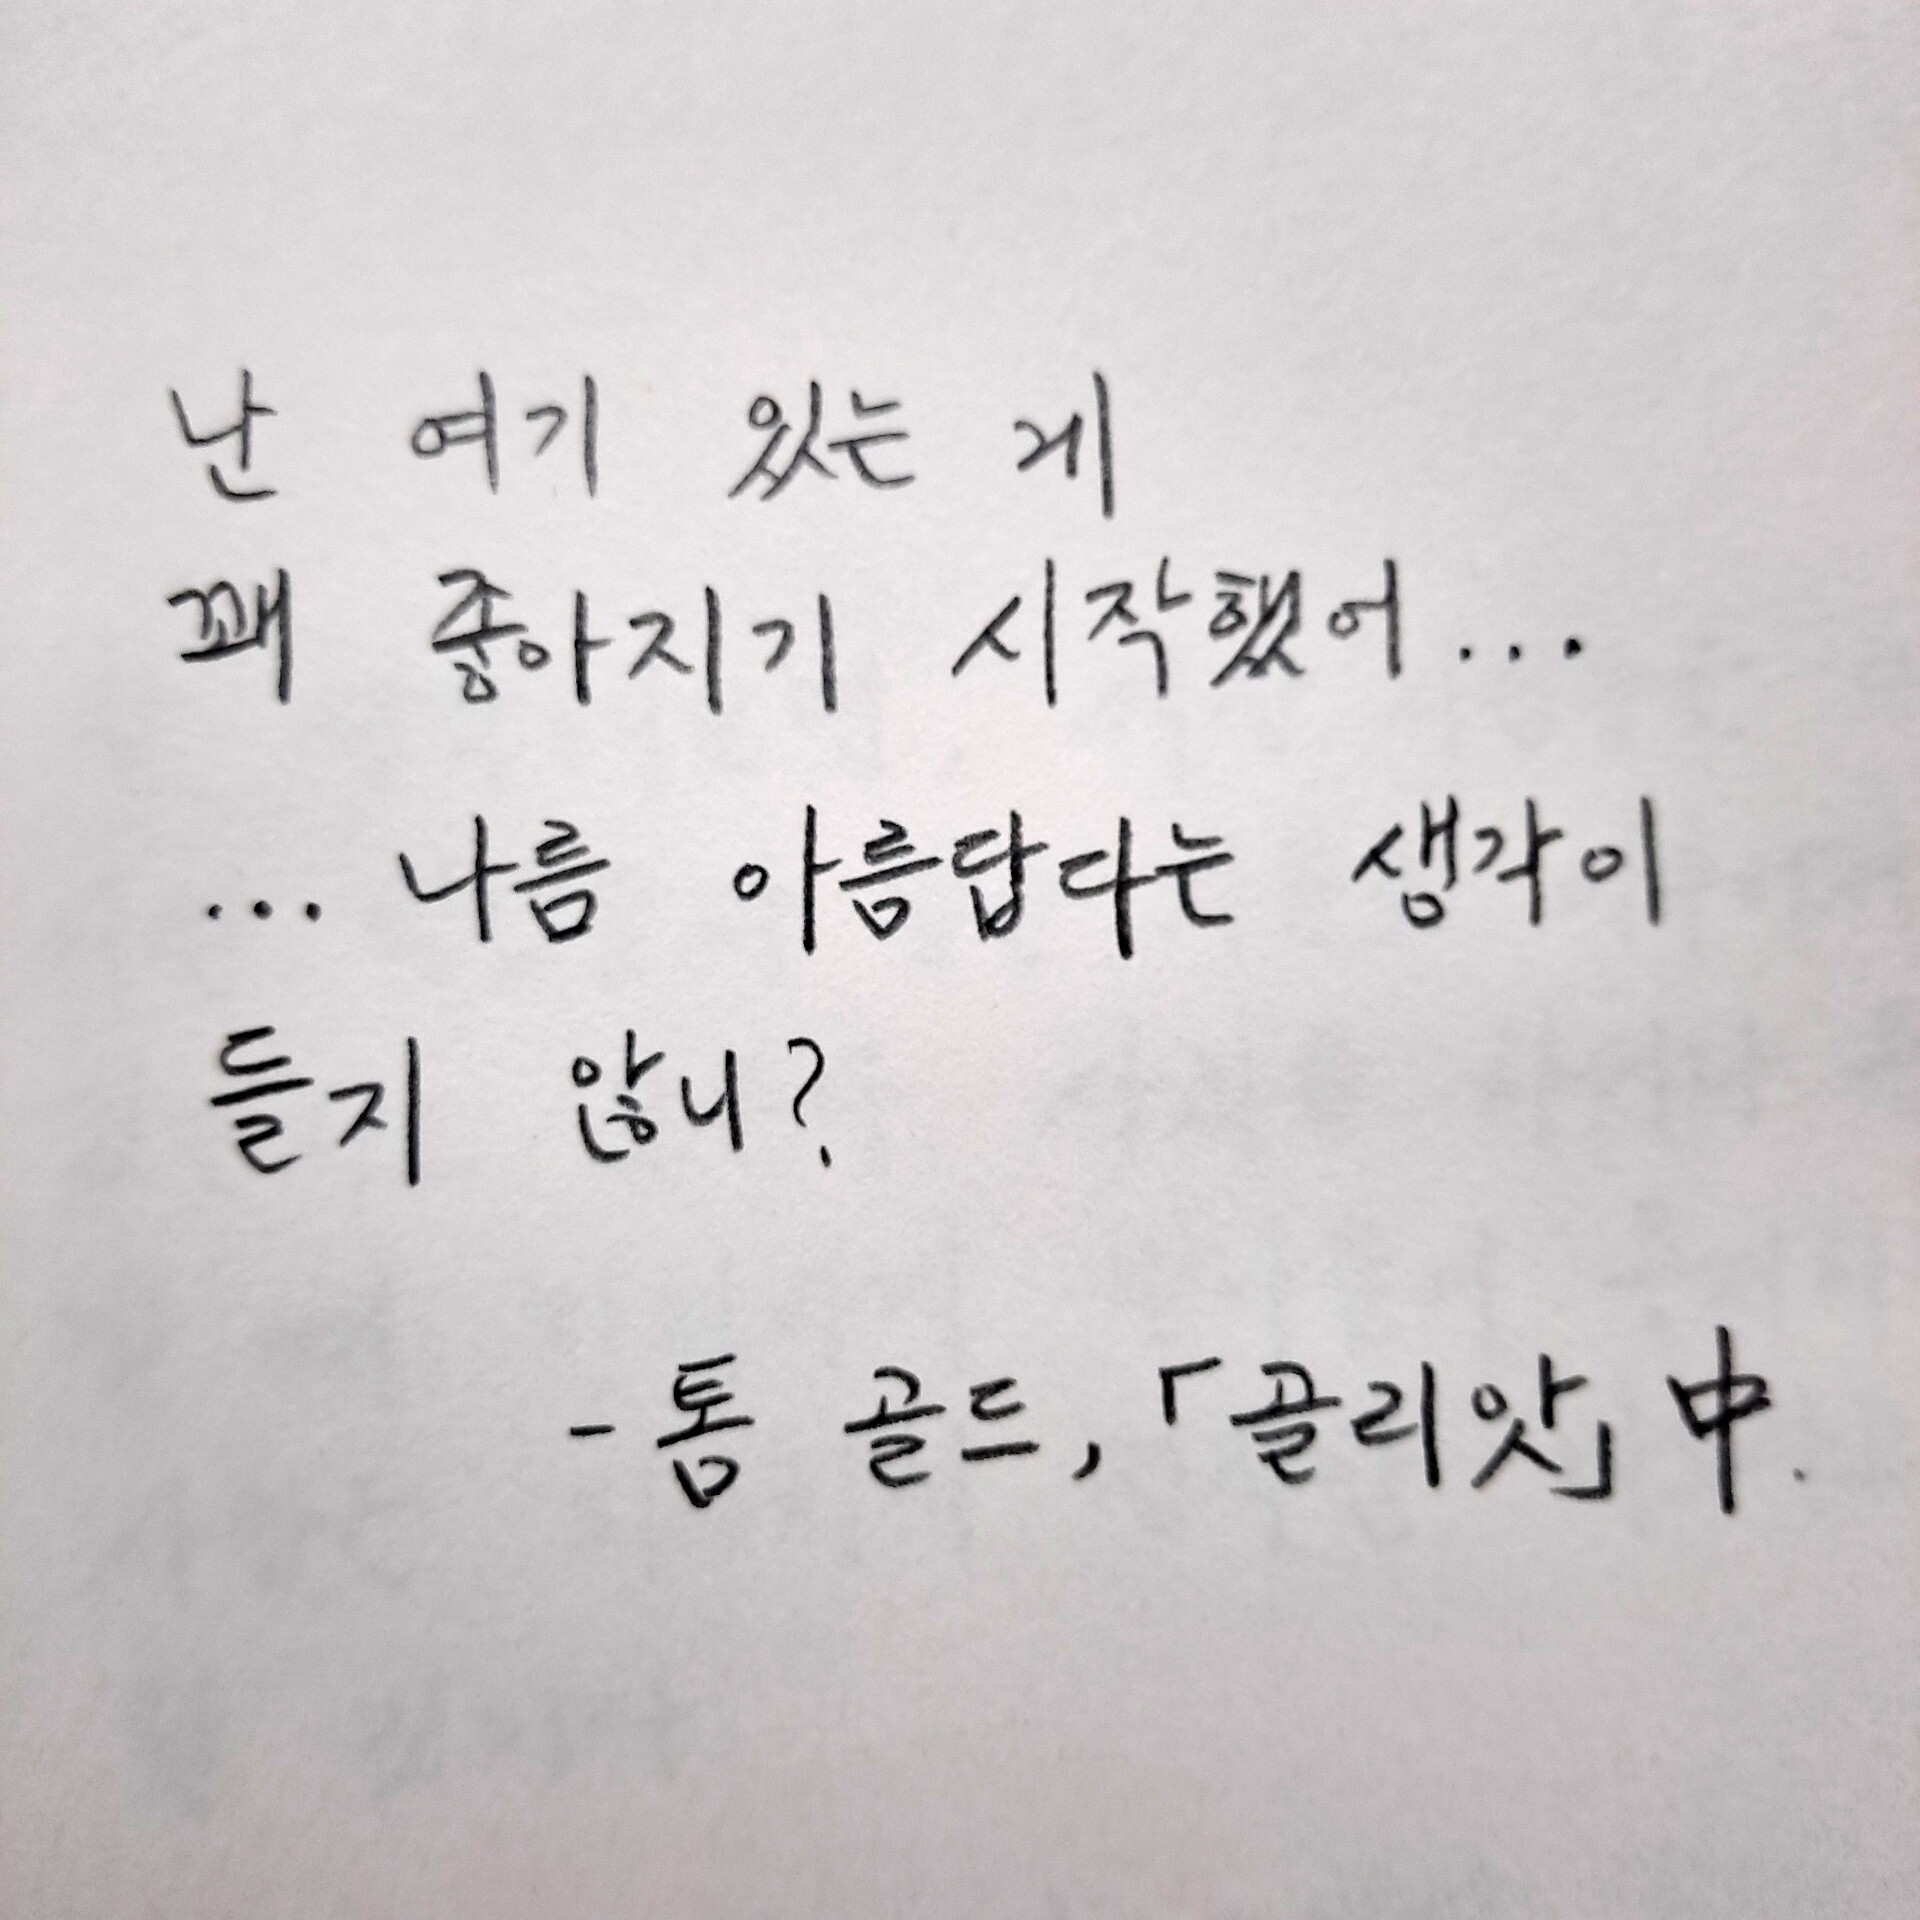 난 여기 있는 게
꽤 좋아지기 시작했어...
... 나름 아름답다는 생각이
들지 않니?
- 톰 골드, 「골리앗」 中.